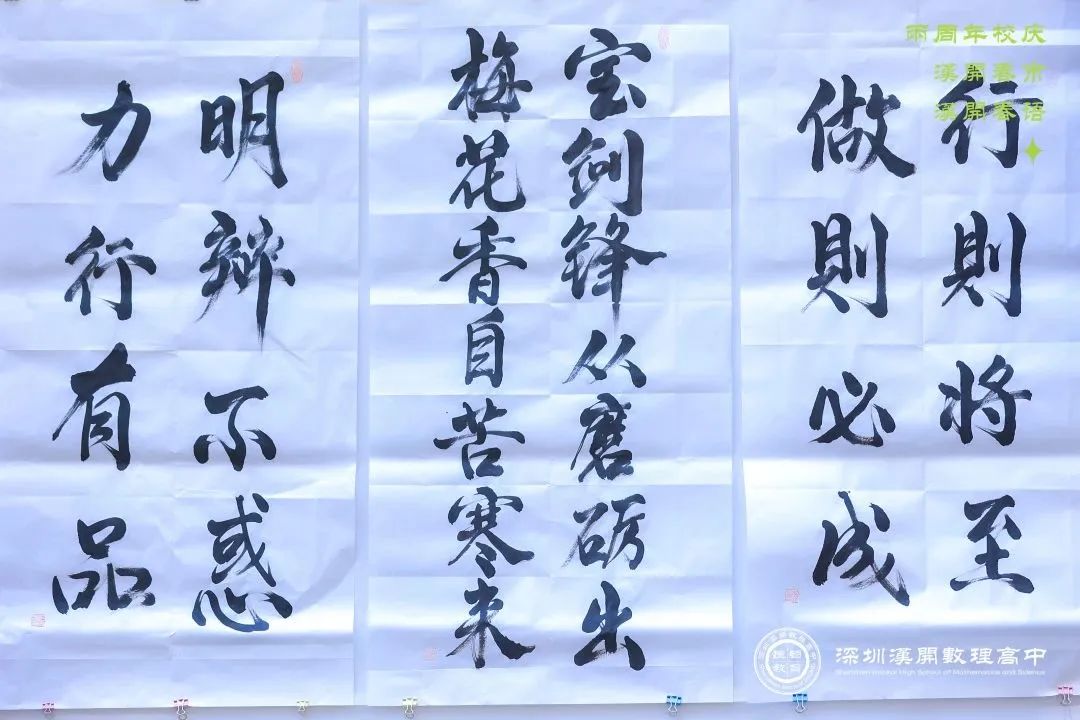 两周年校庆
漢開春市
漢開春语
行則将至
做則必成
宝剑锋从磨砺出
梅花香自苦寒来
明辨不惑
力行有品
深圳漢開數理高中